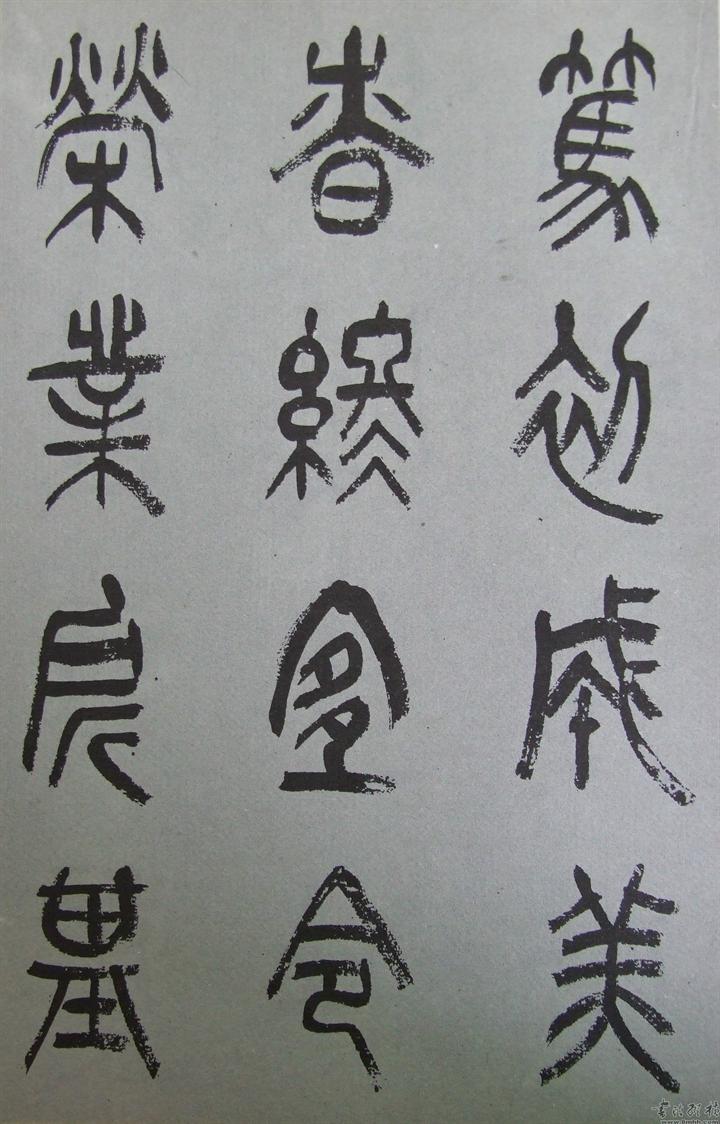 篤初成美
昚終宜令
榮業所基